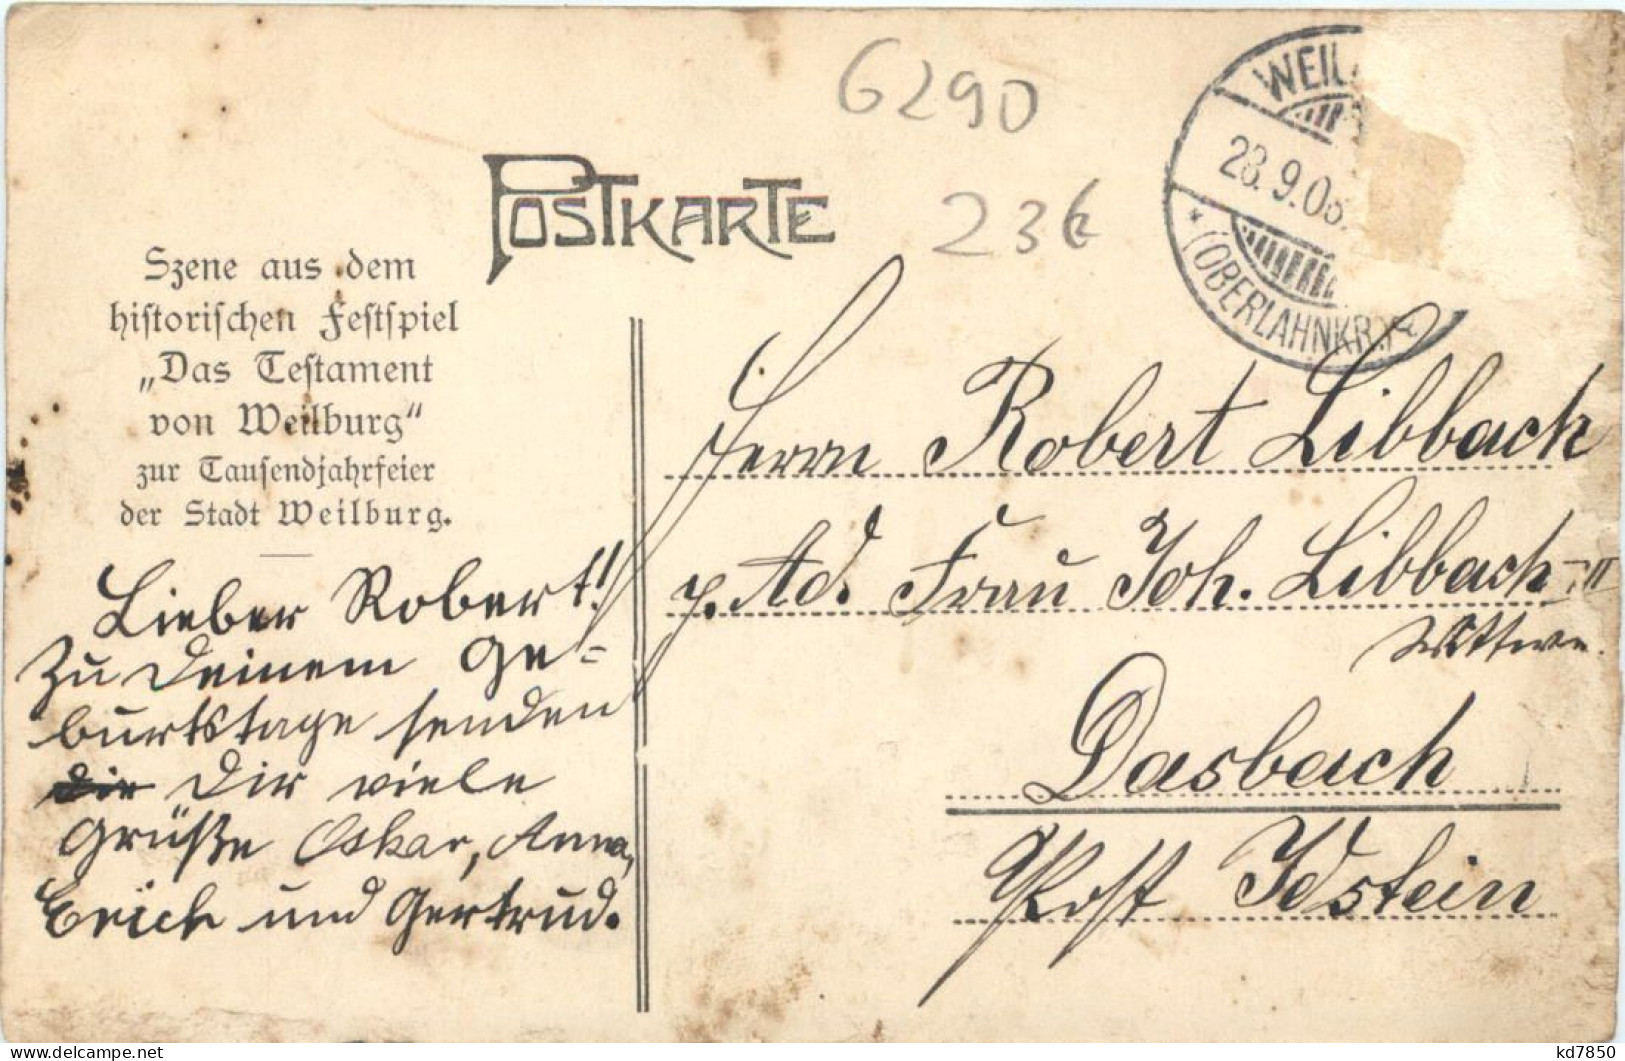 6290
WEIL
POSTKARTE
28.9.06.
23€
(OBERLAHNKR.)
Szene aus dem
historischen Festspiel
„Das Testament
von Weilburg“
zur Tausendjahrfeier
der Stadt Weilburg.
Lieber Robert!
Zu Deinem Ge=
burtstage senden
die Dir viele
Grüße Oskar, Anna,
Erich und Gertrud.
Herrn Robert Libbach
p. Ad. Frau Joh. Libbach II
Wittwe.
Dasbach
Post Idstein
kd7850